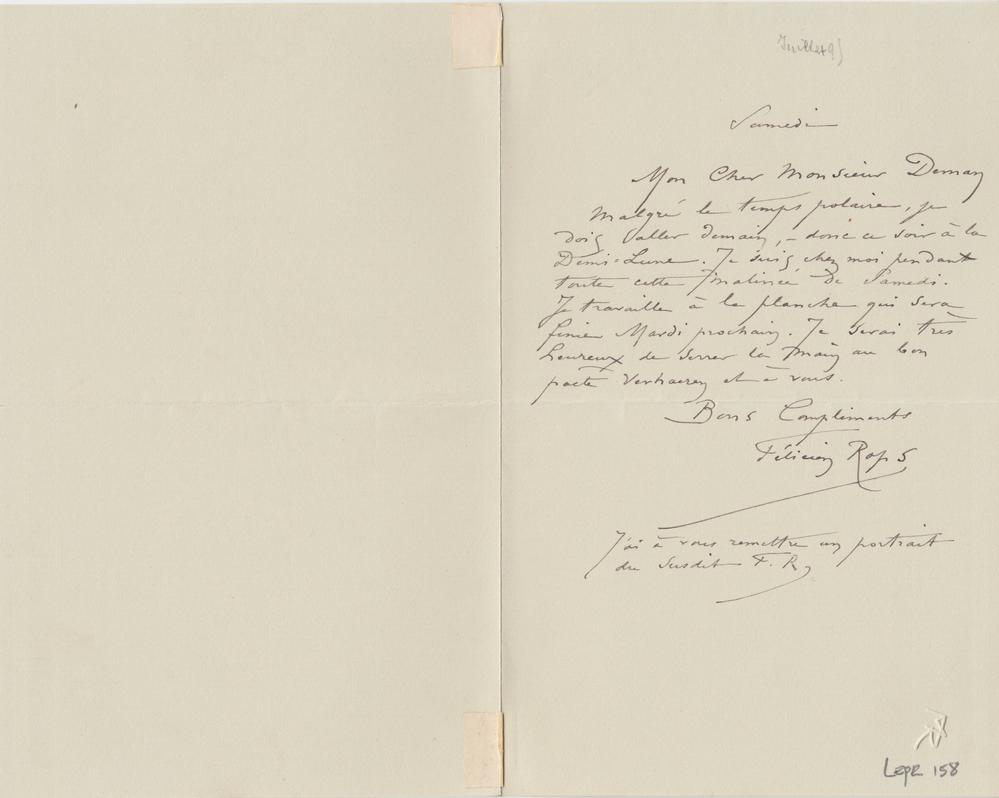 Juillet 95
Samedi
Mon Cher Monsieur Deman
Malgré le temps polaire, je
dois aller demain, – donc ce soir à la
Demi-Lune. Je suis chez moi pendant
toute cette matinée de Samedi.
Je travaille à la planche qui sera
finie Mardi prochain. Je serai très
heureux de serrer la main au bon
poète Verhaeren et à vous.
Bons Compliments
Félicien Rops
J'ai à vous remettre un portrait
du susdit F. R.
Lepr 158